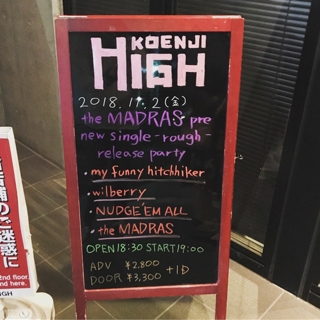 KOENJI
HIGH
2018.11.2(金)
the MADRAS pre
new single-rough-
release party
・my funny hitchhiker
・wilberry
・NUDGE'EM ALL
・the MADRAS
OPEN18:30 START19:00
ADV ¥2,800
DOOR ¥3,300 +1D
店舗の
ご迷惑に
2nd floor.
nd here.
IGH